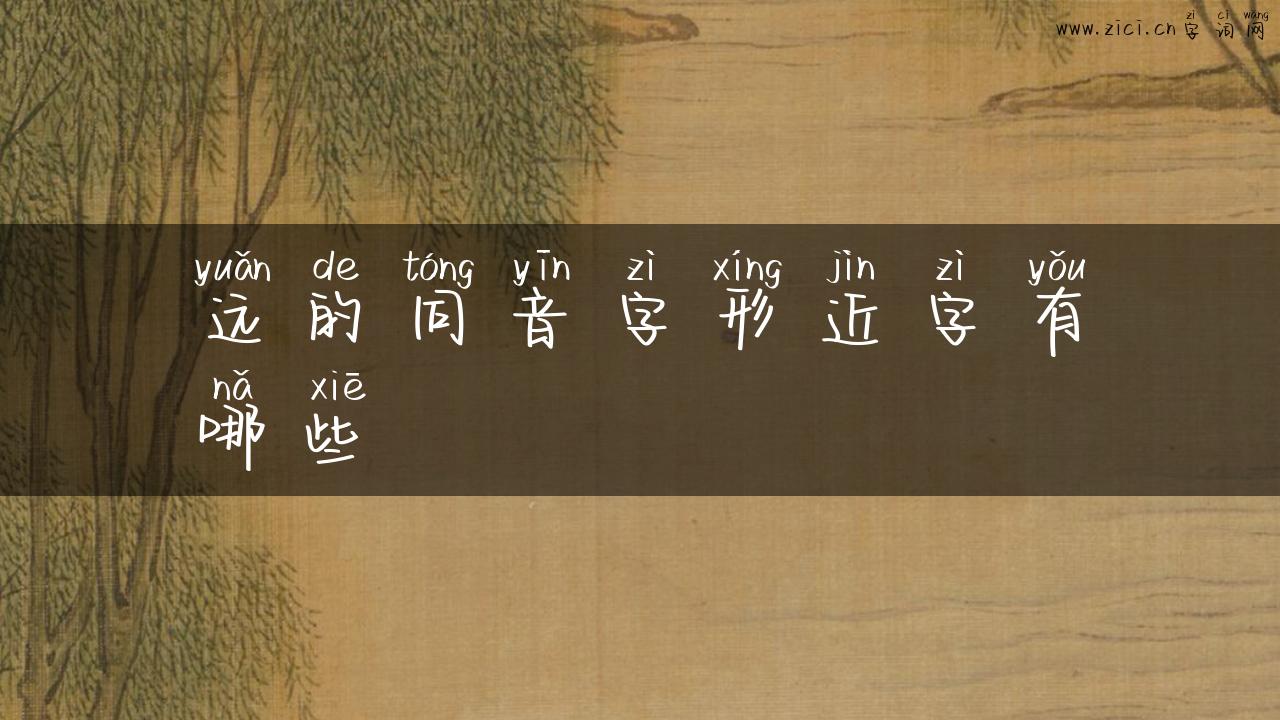 zì cí wǎng
www.zici.cn 字词网
yuǎn de tóng yīn zì xíng jìn zì yǒu
远的同音字形近字有
nǎ xiē
哪些